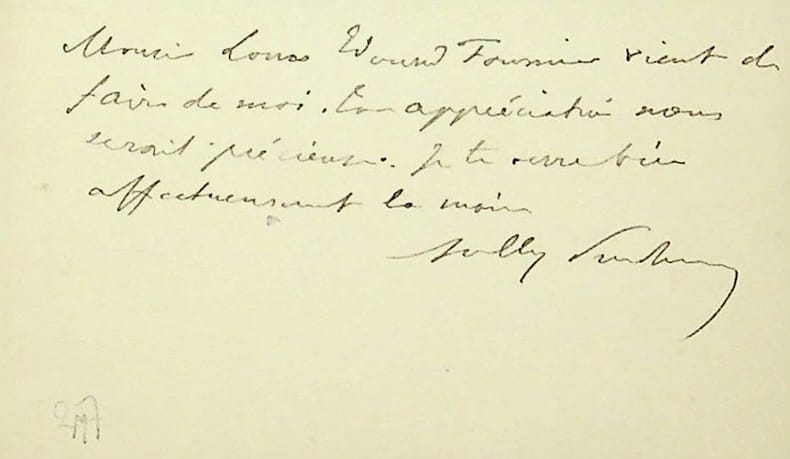 Monsieur Louis Edouard Fournier vient de
faire de moi. Ton appréciation nous
serait précieuse. Je te serre bien
affectueusement la main
Sully Prudhomme